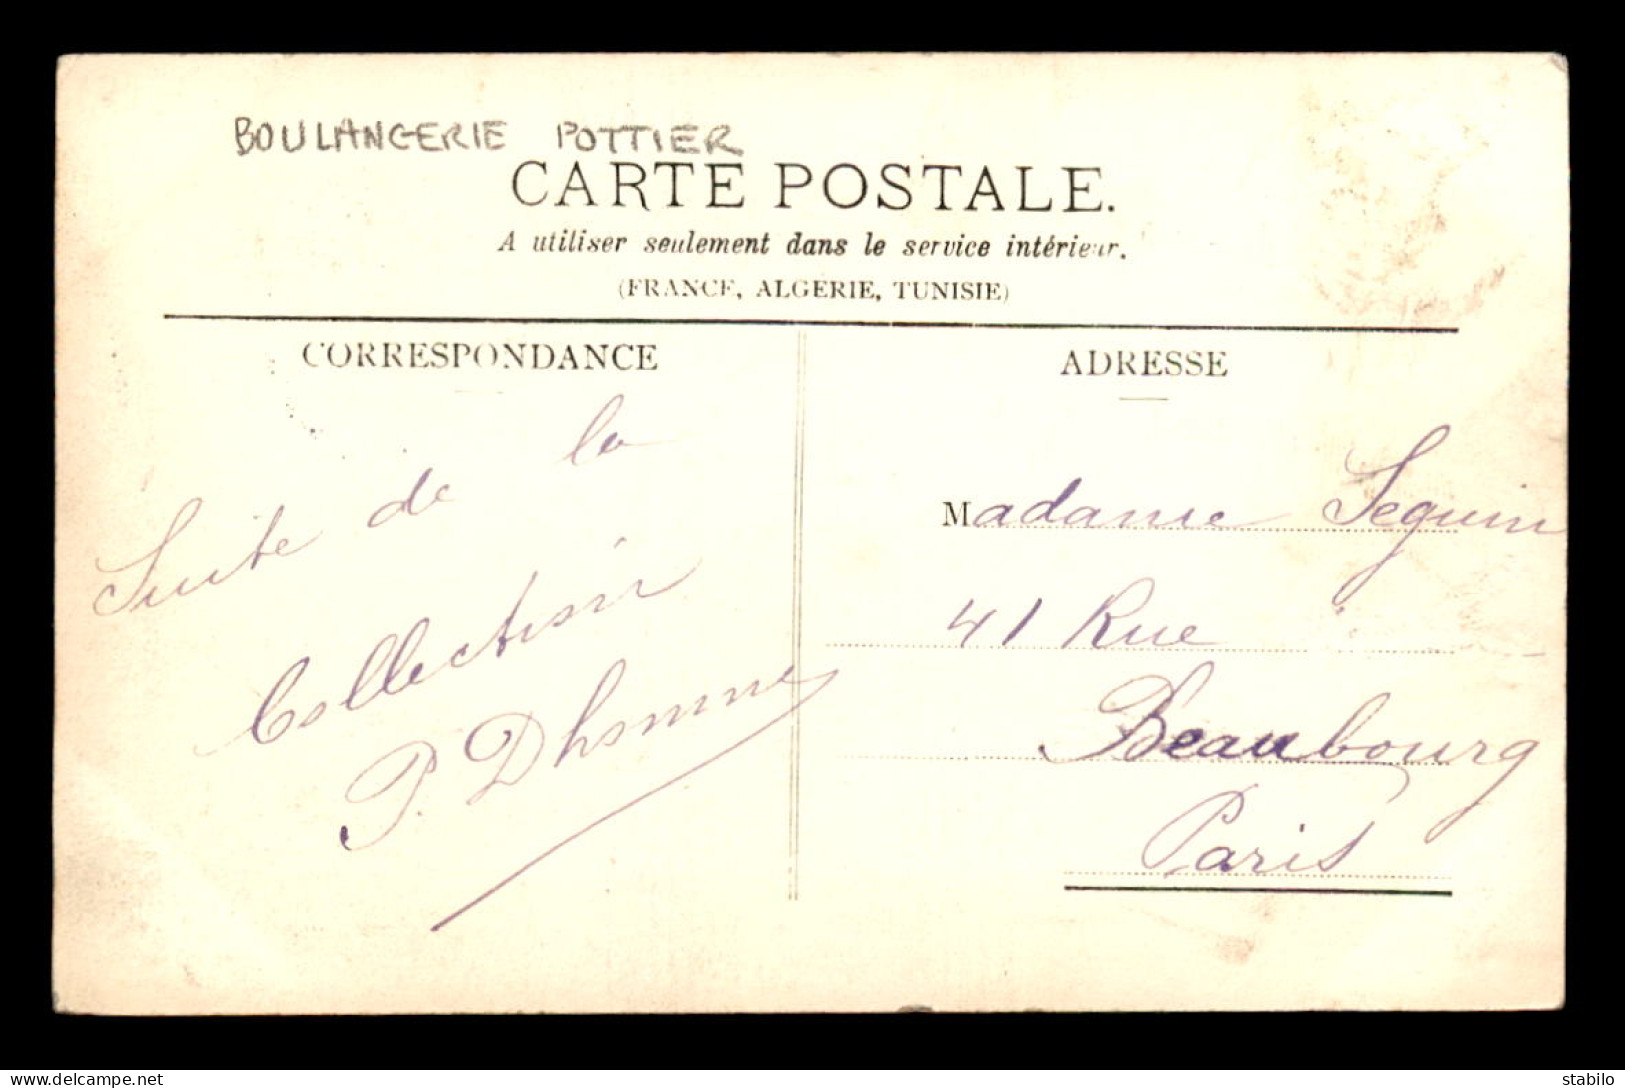 BOULANGERIE POTTIER
CARTE POSTALE.
A utiliser seulement dans le service intérieur.
(FRANCE, ALGERIE, TUNISIE)
CORRESPONDANCE
Suite de la
Collection
P. Dhomme
ADRESSE
Madame Seguin
41 Rue
Beaubourg
Paris
delcampe.net
stabilo